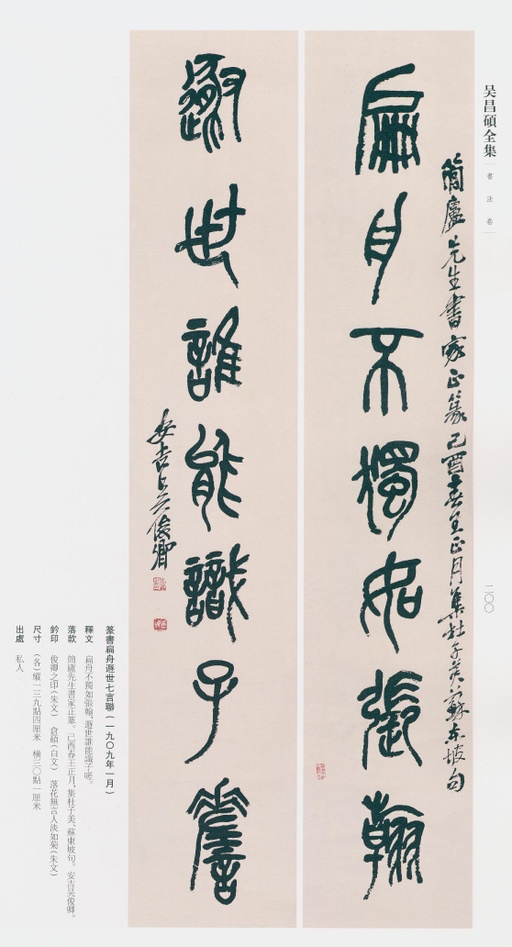 吴昌碩全集
書法卷
二〇〇
簡廬先生書家正篆己酉春王正月集杜子美蘇東坡句
扁舟不獨如張翰
遯世誰能識子嗟
安吉吳俊卿
篆書扁舟遯世七言聯(一九〇九年一月)
釋文 扁舟不獨如張翰,遯世誰能識子嗟。
落款 簡廬先生書家正篆。己酉春王正月,集杜子美、蘇東坡句。安吉吳俊卿。
鈐印 俊卿之印(朱文) 倉碩(白文) 落花無言人淡如菊(朱文)
尺寸 (各)縱一三九點四厘米 橫三〇點一厘米
出處 私人